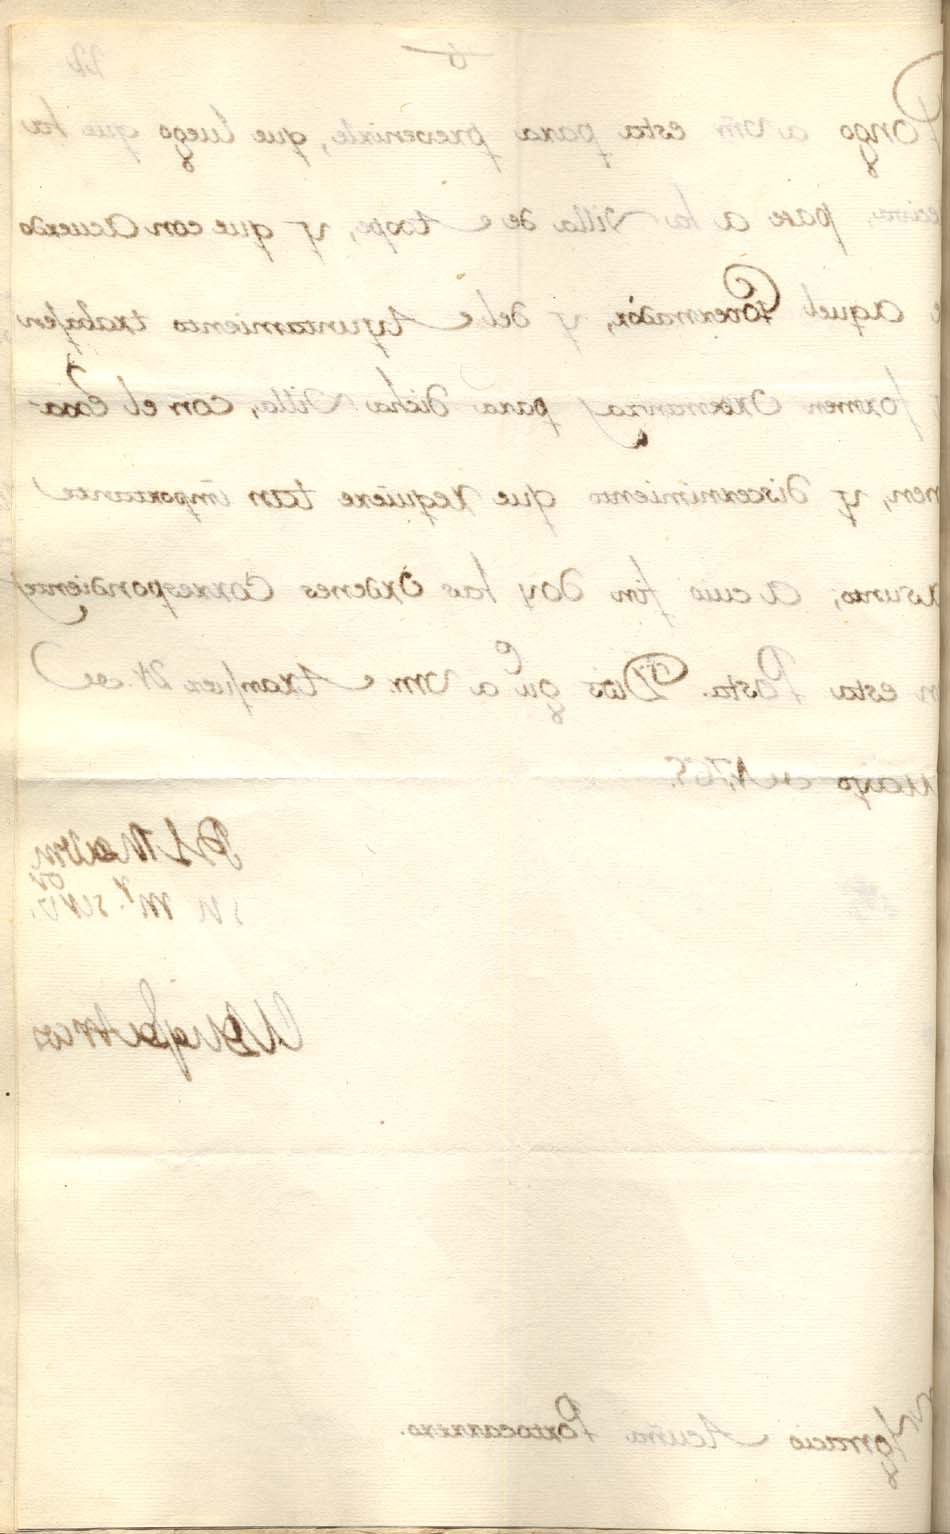 22
Pongo a Vm̃ esta para prevenirle, que luego que la
pase a la Villa de Atope, y que con Acuerdo
aquel Governador, y del Ayuntamiento trabajen
formen Ordenanza para dicha Villa, con el Exa-
men, y discernimiento que requiere tan importante
asunto; a cuio fin doy las ordenes correspondientes
esta Posta. Dios gu.e a Vm. Aranjuez 24. de
Mayo de 1765.
su m.r serv.or
Ignacio Acuña Portocarrero.